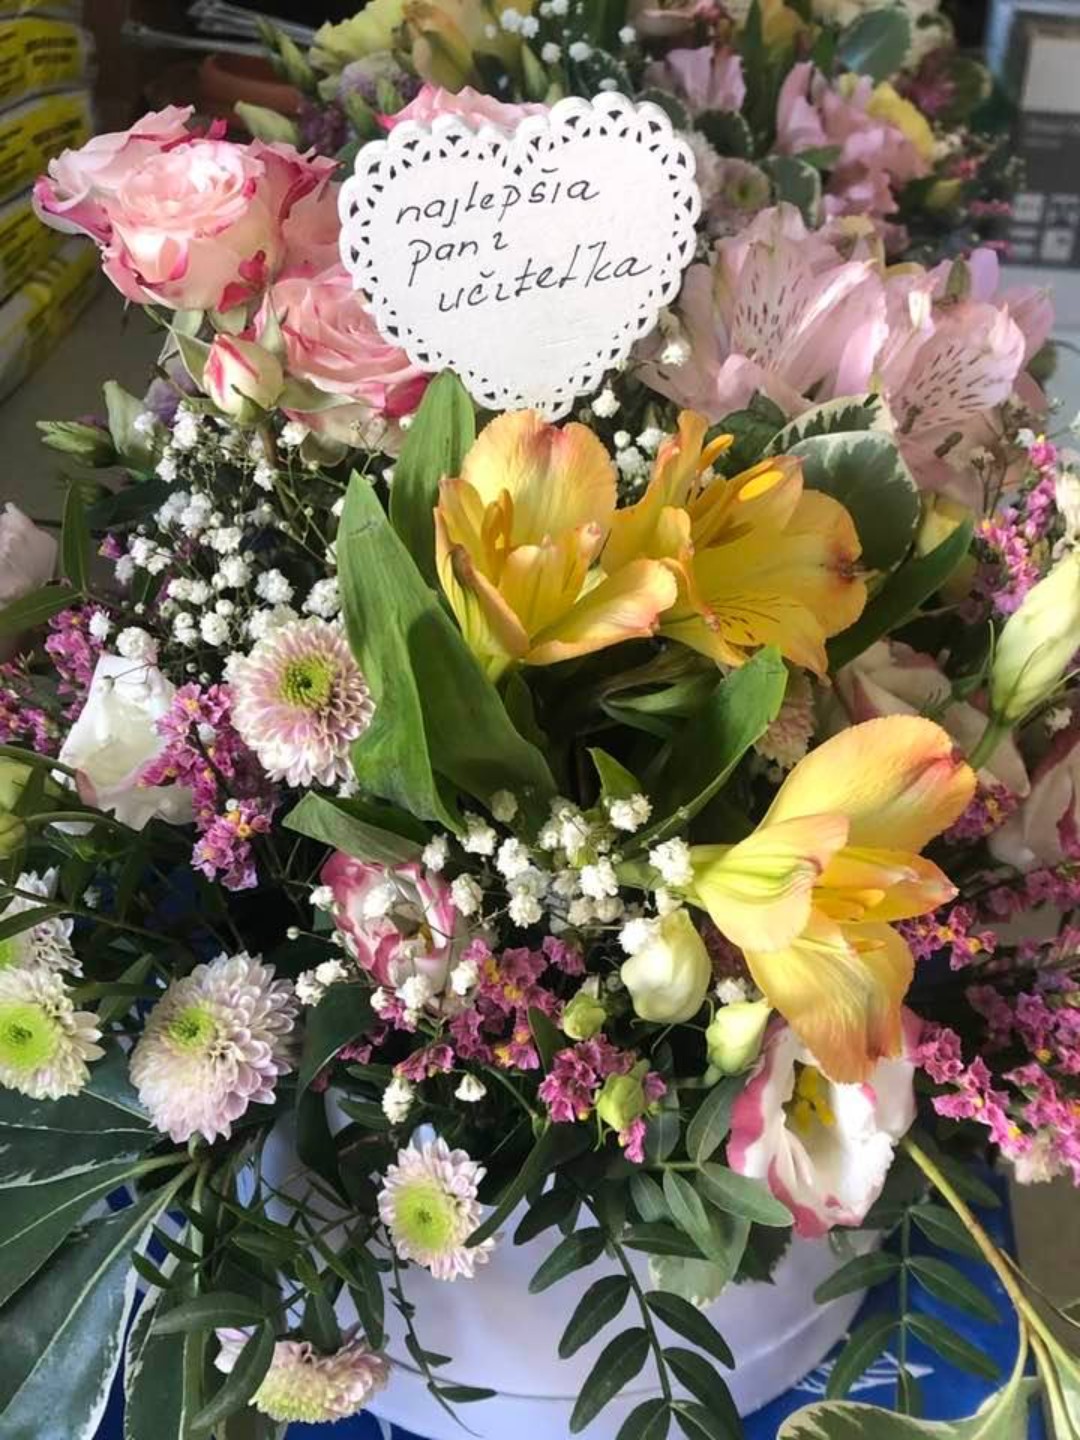 najlepšia
pani
učiteľka